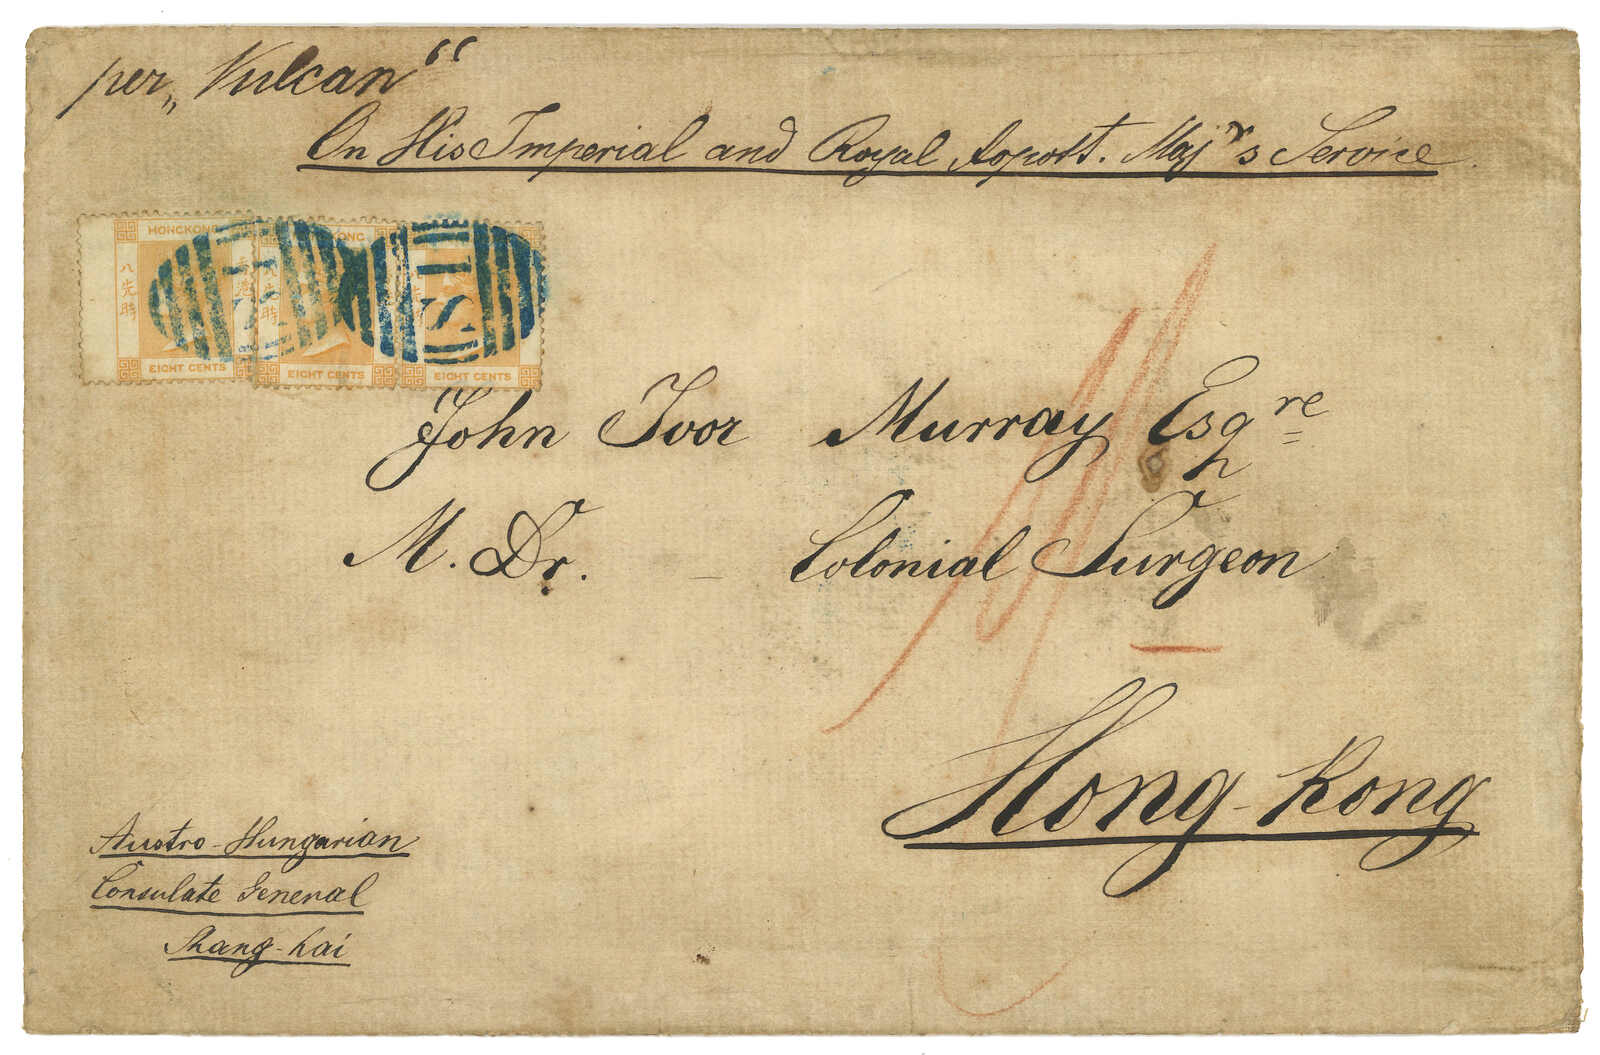 per „Vulcan“
On His Imperial and Royal Apost. Maj^r's Service
HONGKONG
八先時
EIGHT CENTS
EIGHT CENTS
EIGHT CENTS
S1
John Ivor Murray Esq^re
M. Dr. – Colonial Surgeon
Hong-Kong
Austro-Hungarian
Consulate General
Shang-hai